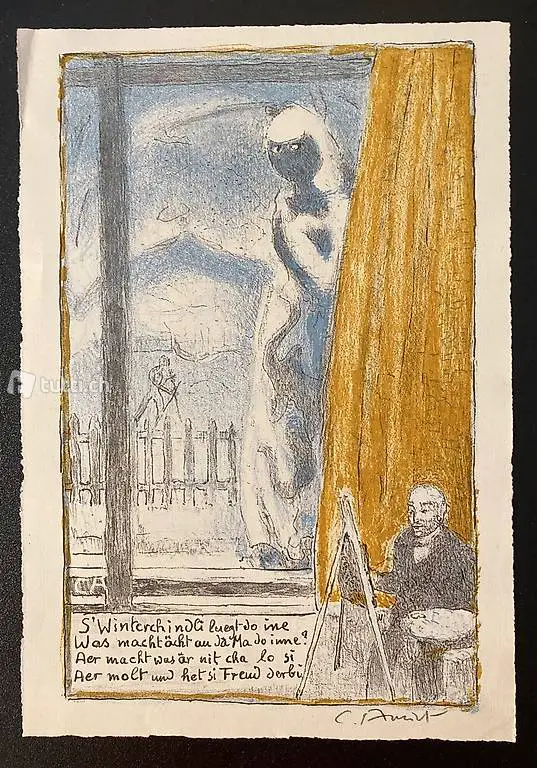 tutti.ch
CA
S'Winterchindli luegt do ine
Was macht ächt au dä Ma do inne?
Aer macht was är nit cha lo si
Aer molt und het si Freud derbi
C. Amiet